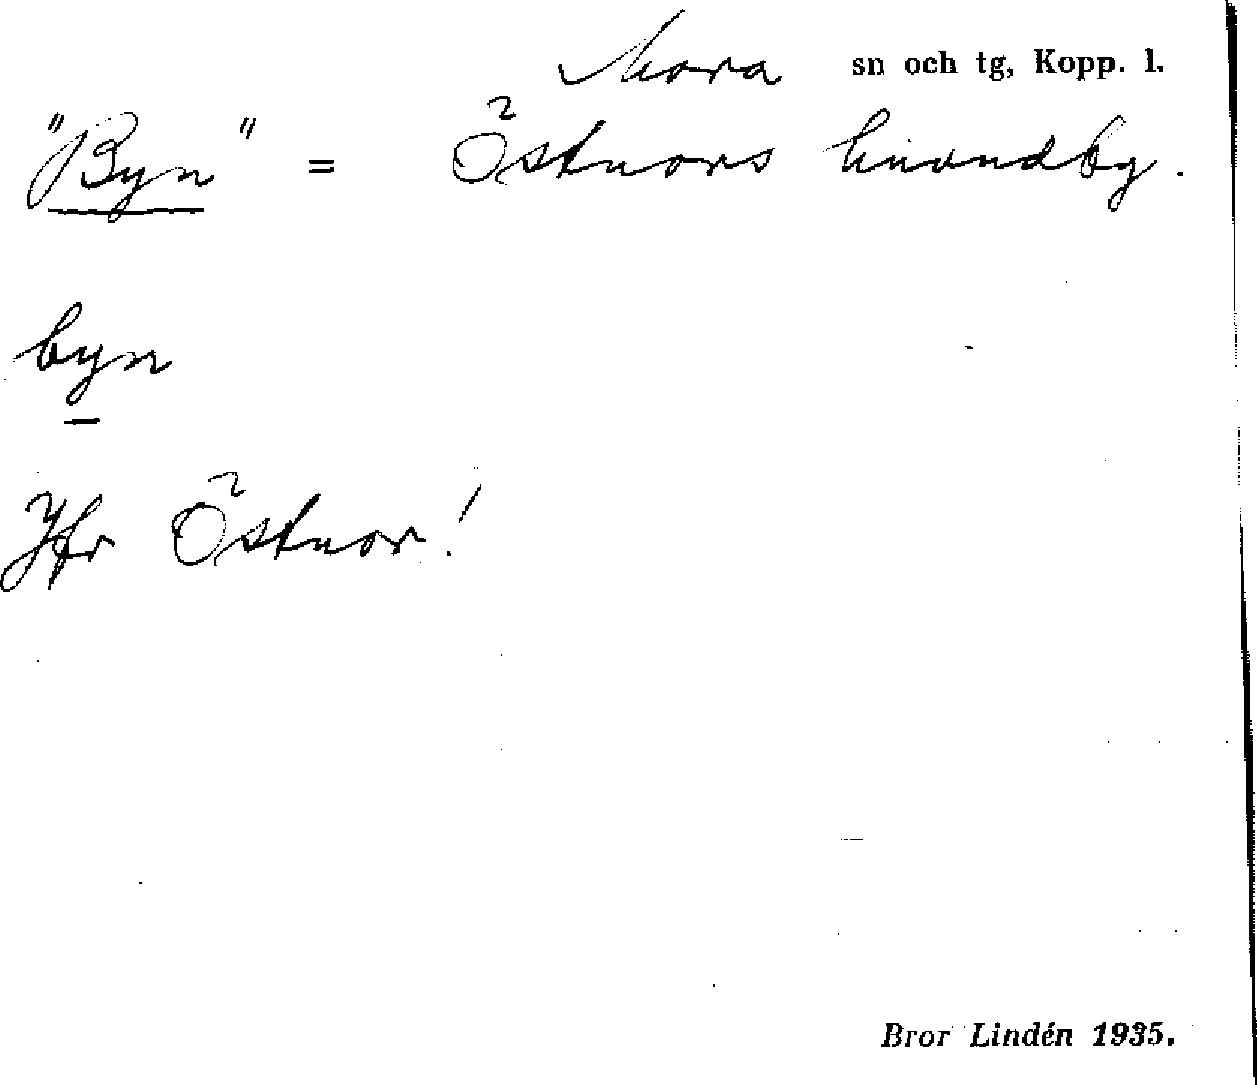 Mora sn och tg, Kopp. l.
"Byn" = Östnors huvudby.
byn
Jfr Östnor!
Bror Lindén 1935.